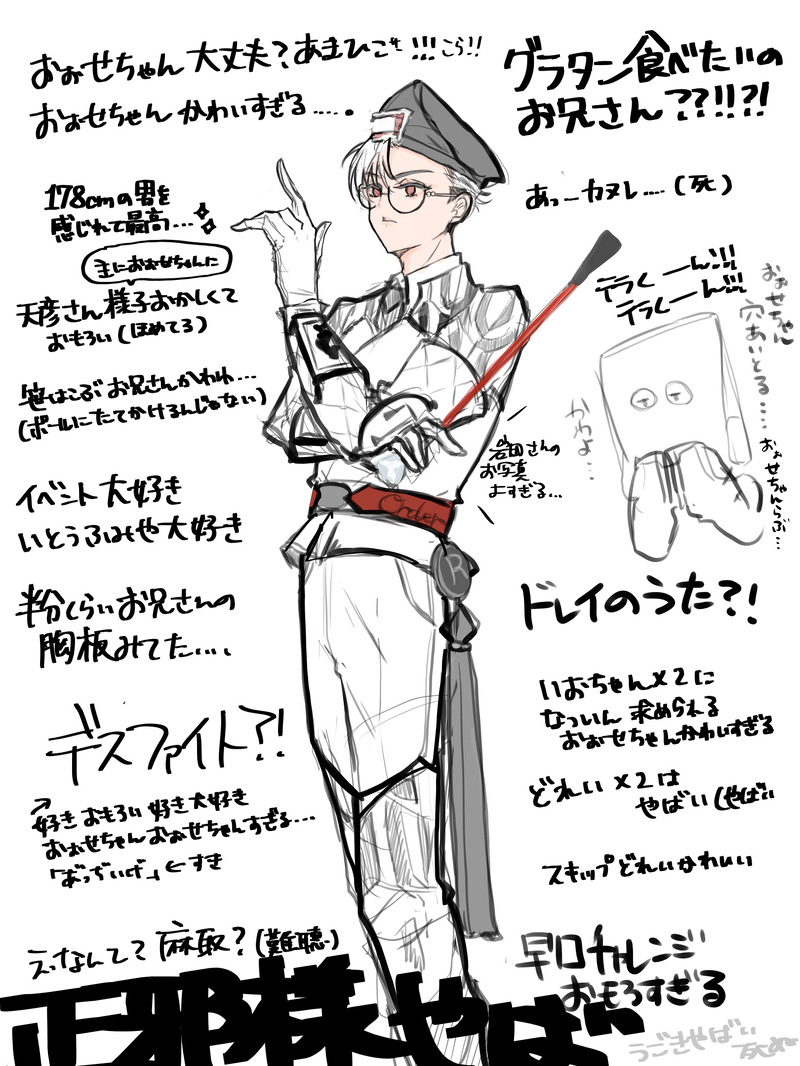 おぉせちゃん 大丈夫?あまひこォ!!!こら!!
おぉせちゃん かわいすぎる.....
グラタン食べたいの
お兄さん??!!?!
178cmの男を
感じれて最高...
主におぉせちゃんに
あっーカヌレ....(死)
天彦さん様子おかしくて
おもろい(ほめてる)
テラくーん!!!
テラくーん!!!
おぉせちゃん
穴あいとる....
おぉせちゃんらぶ...
かわよ...
笹はこぶ お兄さんかわわ...
(ポールにたてかけるんじゃない)
岩田さんの
お写真
よすぎる...
イベント大好き
いとうふみや大好き
Order
R
半分くらいお兄さんの
胸板みてた....
ドレイのうた?!
いおちゃん×2に
なついん 求められる
おおせちゃんかわいすぎる
デスファイト?!
好き おもろい 好き大好き
おおせちゃんおぉせちゃんすぎる...
「あっぢいげ」←すき
どれい×2は
やばい(やばい
スキップどれいかわいい
えっなんて?麻取?(難聴)
早口チャレンジ
おもろすぎる
正邪様やば
うごきやばい